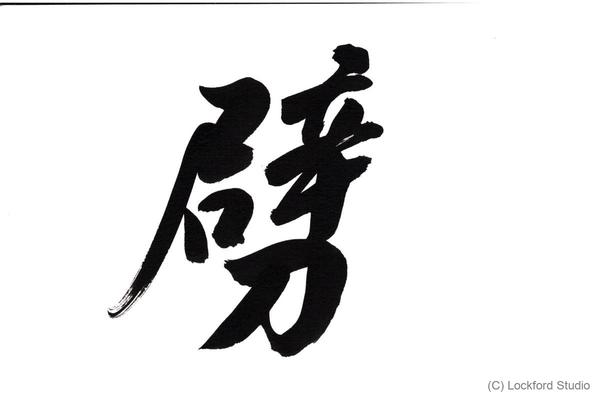 劈
(C) Lockford Studio